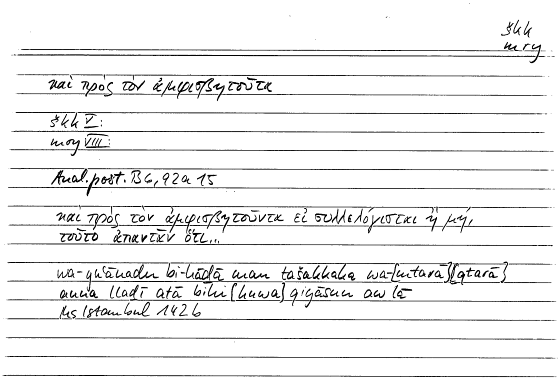 škk
mry
καὶ πρὸς τὸν ἀμφισβητοῦτα
škk V:
mry VIII:
Anal. post. B6, 92a 15
καὶ πρὸς τὸν ἀμφισβητοῦντα εἰ συλλελόγισται ἢ μή,
τοῦτο ἀπαντᾶν ὅτι...
wa-yuʿānadu bi-hāḏā man tašakkaka wa-{mtarā}
anna llaḏī atā bihi {huwa} qiyāsun aw lā
Ms Istanbul 142b